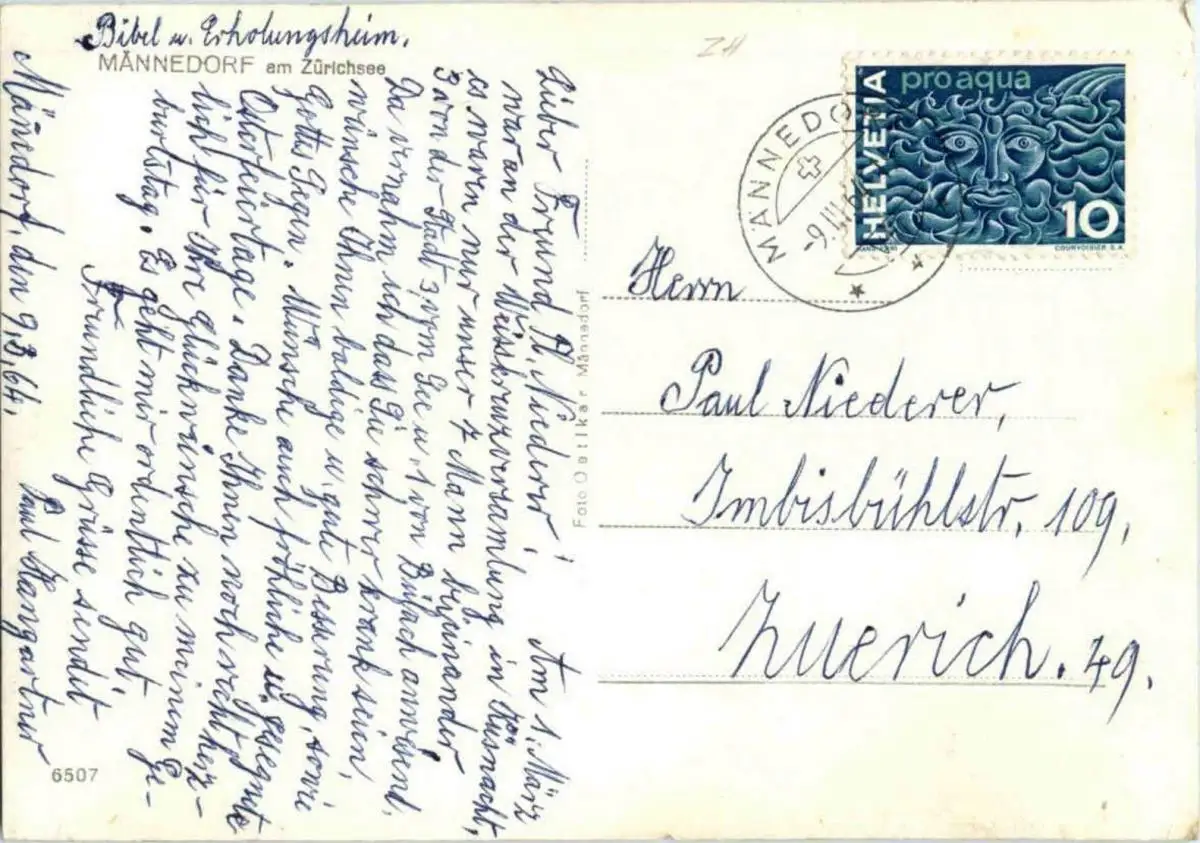 Bibel u. Erholungsheim,
MÄNNEDORF am Zürichsee
Männedorf, den 9,3,64.
Lieber Freund H, Niederer! Am 1, März
war an der Weisskreuzversamlung in Küsnacht,
es waren nur unser 7 Mann beieinander
3 von der Stadt, vom See u, 1 von Bülach anwesend,
Da vernahm ich dass Sie schwer krank seien,
wünsche Ihnen baldige u, gute Besserung, sowie
Gottes Segen. Wünsche auch fröhliche u, gesegnete
Osterfeiertage. Danke Ihnen noch recht herz-
lich für Ihre glückwünsche zu meinem Ge-
burtstag. Es geht mir ordentlich gut,
Freundliche Grüsse sendet
Paul Hangartner
6507
Foto Oetiker Männedorf
ZH
MÄNNEDO
-9.III.6
HELVETIA
pro aqua
10
COURVOISIER S.A.
Herrn
Paul Niederer,
Imbisbühlstr, 109,
Zuerich. 49.